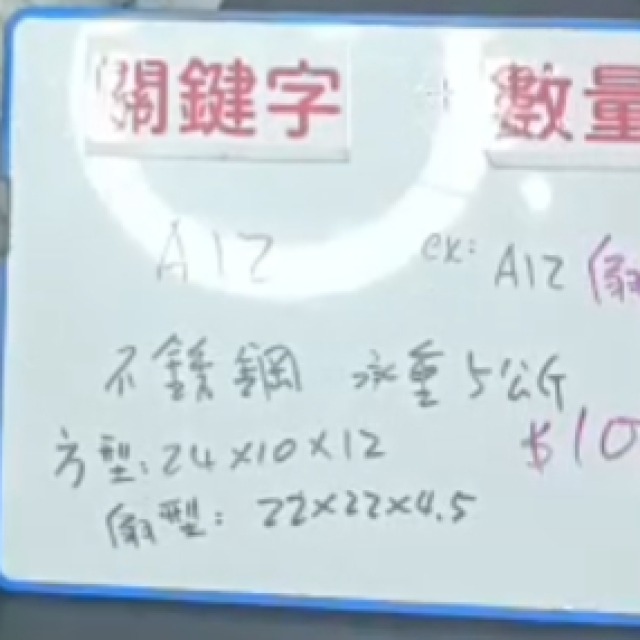 關鍵字 + 數量
A12 ex: A12
不銹鋼 承重5公斤
$10
方型: 24×10×12
型: 22×22×4.5